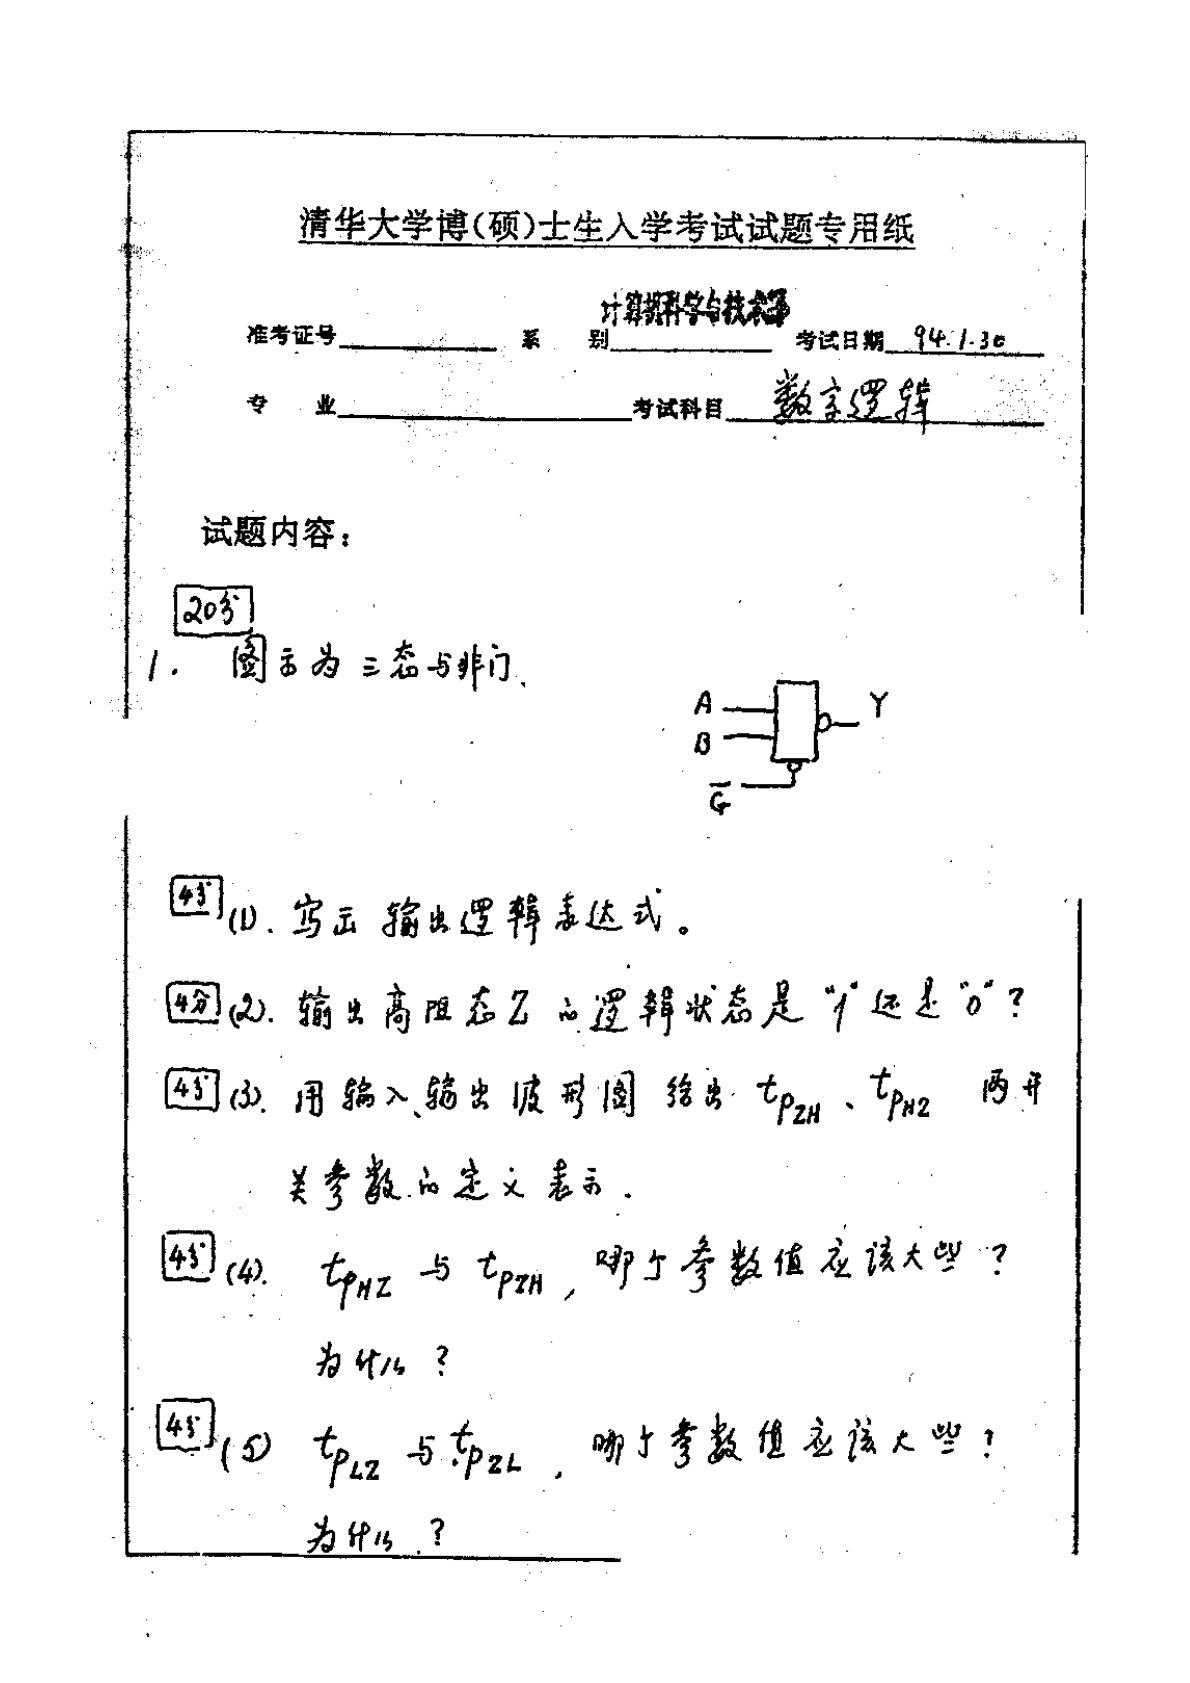 清华大学博(硕)士生入学考试试题专用纸
准考证号 系 别 计算机科学与技术系 考试日期 94.1.30
专 业 考试科目 数字逻辑
试题内容:
20分
1. 图示为三态与非门.
A
B
G̅
Y
4分 (1). 写出输出逻辑表达式。
4分 (2). 输出高阻态Z的逻辑状态是“1”还是“0”?
4分 (3). 用输入、输出波形图给出 tPZH、tPHZ 两开
关参数的定义表示.
4分 (4). tPHZ 与 tPZH, 哪个参数值应该大些?
为什么?
4分 (5) tPLZ 与 tPZL, 哪个参数值应该大些?
为什么?